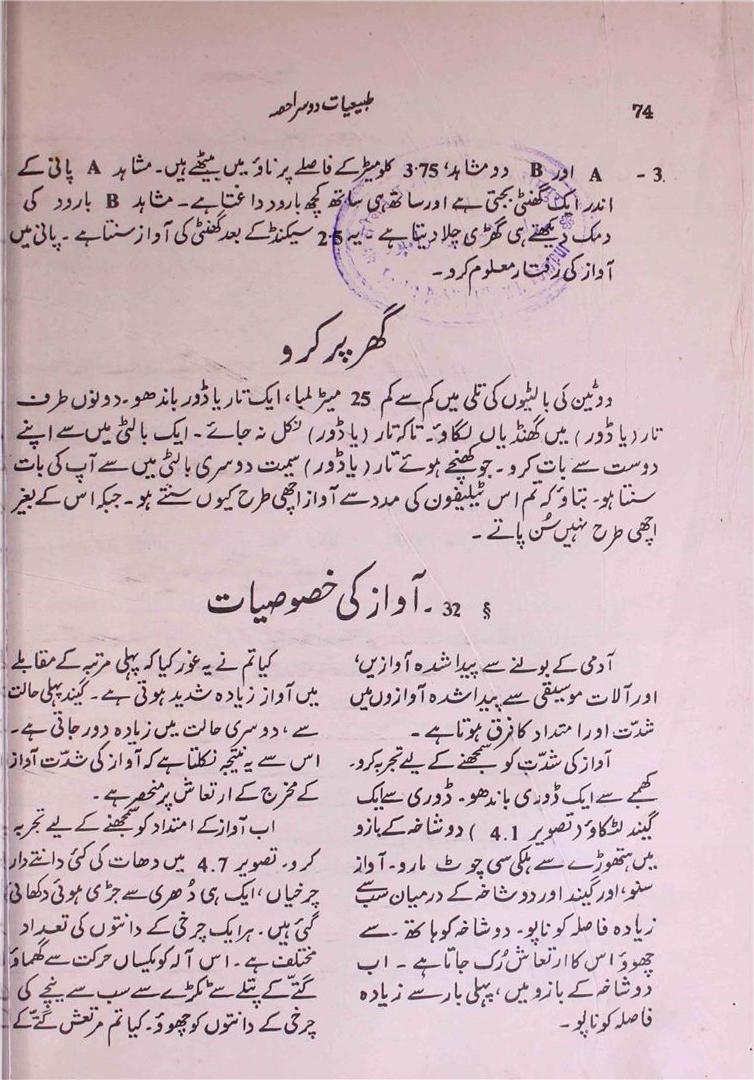 74
طبیعیات دوسرا حصہ
3 - A اور B دو مشاہد، 3.75 کلومیٹر کے فاصلے پر ناؤ میں بیٹھے ہیں۔ مشاہد A پانی کے
اندر ایک گھنٹی بجتی ہے اور ساتھ ہی ساتھ کچھ بارود داغتا ہے۔ مشاہد B بارود کی
دمک دیکھتے ہی گھڑی چلا دیتا ہے۔ یہ 2.5 سیکنڈ کے بعد گھنٹی کی آواز سنتا ہے۔ پانی میں
آواز کی رفتار معلوم کرو۔
گھر پر کرو
دو ٹین کی بالٹیوں کی تلی میں کم سے کم 25 میٹر لمبا، ایک تار یا ڈور باندھو۔ دونوں طرف
تار (یا ڈور) میں گھنڈیاں لگاؤ۔ تاکہ تار (یا ڈور) نکل نہ جائے۔ ایک بالٹی میں سے اپنے
دوست سے بات کرو۔ جو کھنچے ہوئے تار (یا ڈور) سمیت دوسری بالٹی میں سے آپ کی بات
سنتا ہو۔ بتاؤ کہ تم اس ٹیلیفون کی مدد سے آواز اچھی طرح کیوں سنتے ہو۔ جبکہ اس کے بغیر
اچھی طرح نہیں سُن پاتے۔
§ 32 ۔ آواز کی خصوصیات
آدمی کے بولنے سے پیدا شدہ آوازیں،
اور آلات موسیقی سے پیدا شدہ آوازوں میں
شدّت اور امتداد کا فرق ہوتا ہے۔
آواز کی شدّت کو سمجھنے کے لیے تجربہ کرو۔
کھمبے سے ایک ڈوری باندھو۔ ڈوری سے ایک
گیند لٹکاؤ (تصویر 4.1) دو شاخہ کے بازو
میں ہتھوڑے سے ہلکی سی چوٹ مارو۔ آواز
سنو، اور گیند اور دو شاخہ کے درمیان سب سے
زیادہ فاصلہ کو ناپو۔ دو شاخہ کو ہاتھ سے
چھوؤ اس کا ارتعاش رُک جاتا ہے۔ اب
دو شاخہ کے بازو میں، پہلی بار سے زیادہ
فاصلہ کو ناپو۔
کیا تم نے یہ غور کیا کہ پہلی مرتبہ کے مقابلے
میں آواز زیادہ شدید ہوتی ہے۔ گیند پہلی حالت
سے، دوسری حالت میں زیادہ دور جاتی ہے۔
اس سے یہ نتیجہ نکلتا ہے کہ آواز کی شدّت آواز
کے مخرج کے ارتعاش پر منحصر ہے۔
اب آواز کے امتداد کو سمجھنے کے لیے تجربہ
کرو۔ تصویر 4.7 میں دھات کی کئی دانتے دار
چرخیاں، ایک ہی دُھری سے جڑی ہوئی دکھائی
گئی ہیں۔ ہر ایک چرخی کے دانتوں کی تعداد
مختلف ہے۔ اس آلہ کو یکساں حرکت سے گھماؤ
گتّے کے پتلے سے ٹکڑے سے سب سے نیچے کی
چرخی کے دانتوں کو چھوؤ۔ کیا تم مرتعش گتّے کے